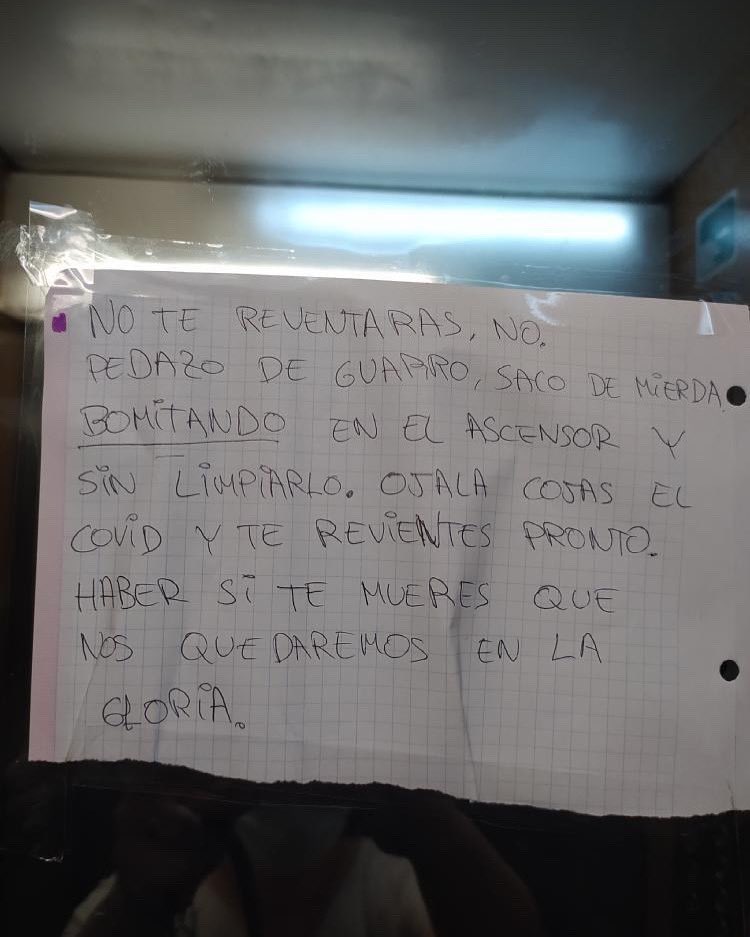 NO TE REVENTARAS, NO.
PEDAZO DE GUARRO, SACO DE MiERDA.
BOMiTANDO EN EL ASCENSOR Y
SiN LiMPiARLO. OJALA COJAS EL
COViD Y TE REViENTES PRONTO.
HABER Si TE MUERES QUE
NOS QUEDAREMOS EN LA
GLORiA.